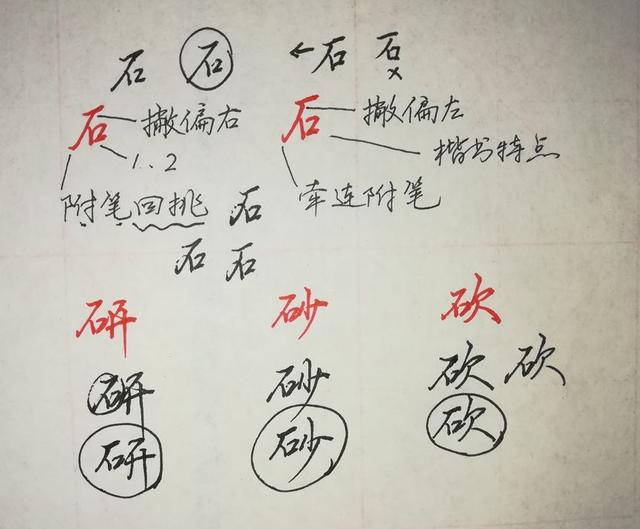 石 石 ←石 石
×
石 撇偏右 石 撇偏左
1、2 楷书特点
附笔回挑 石 牵连附笔
石 石
研 砂 砍
研 砂 砍 砍
研 砂 砍